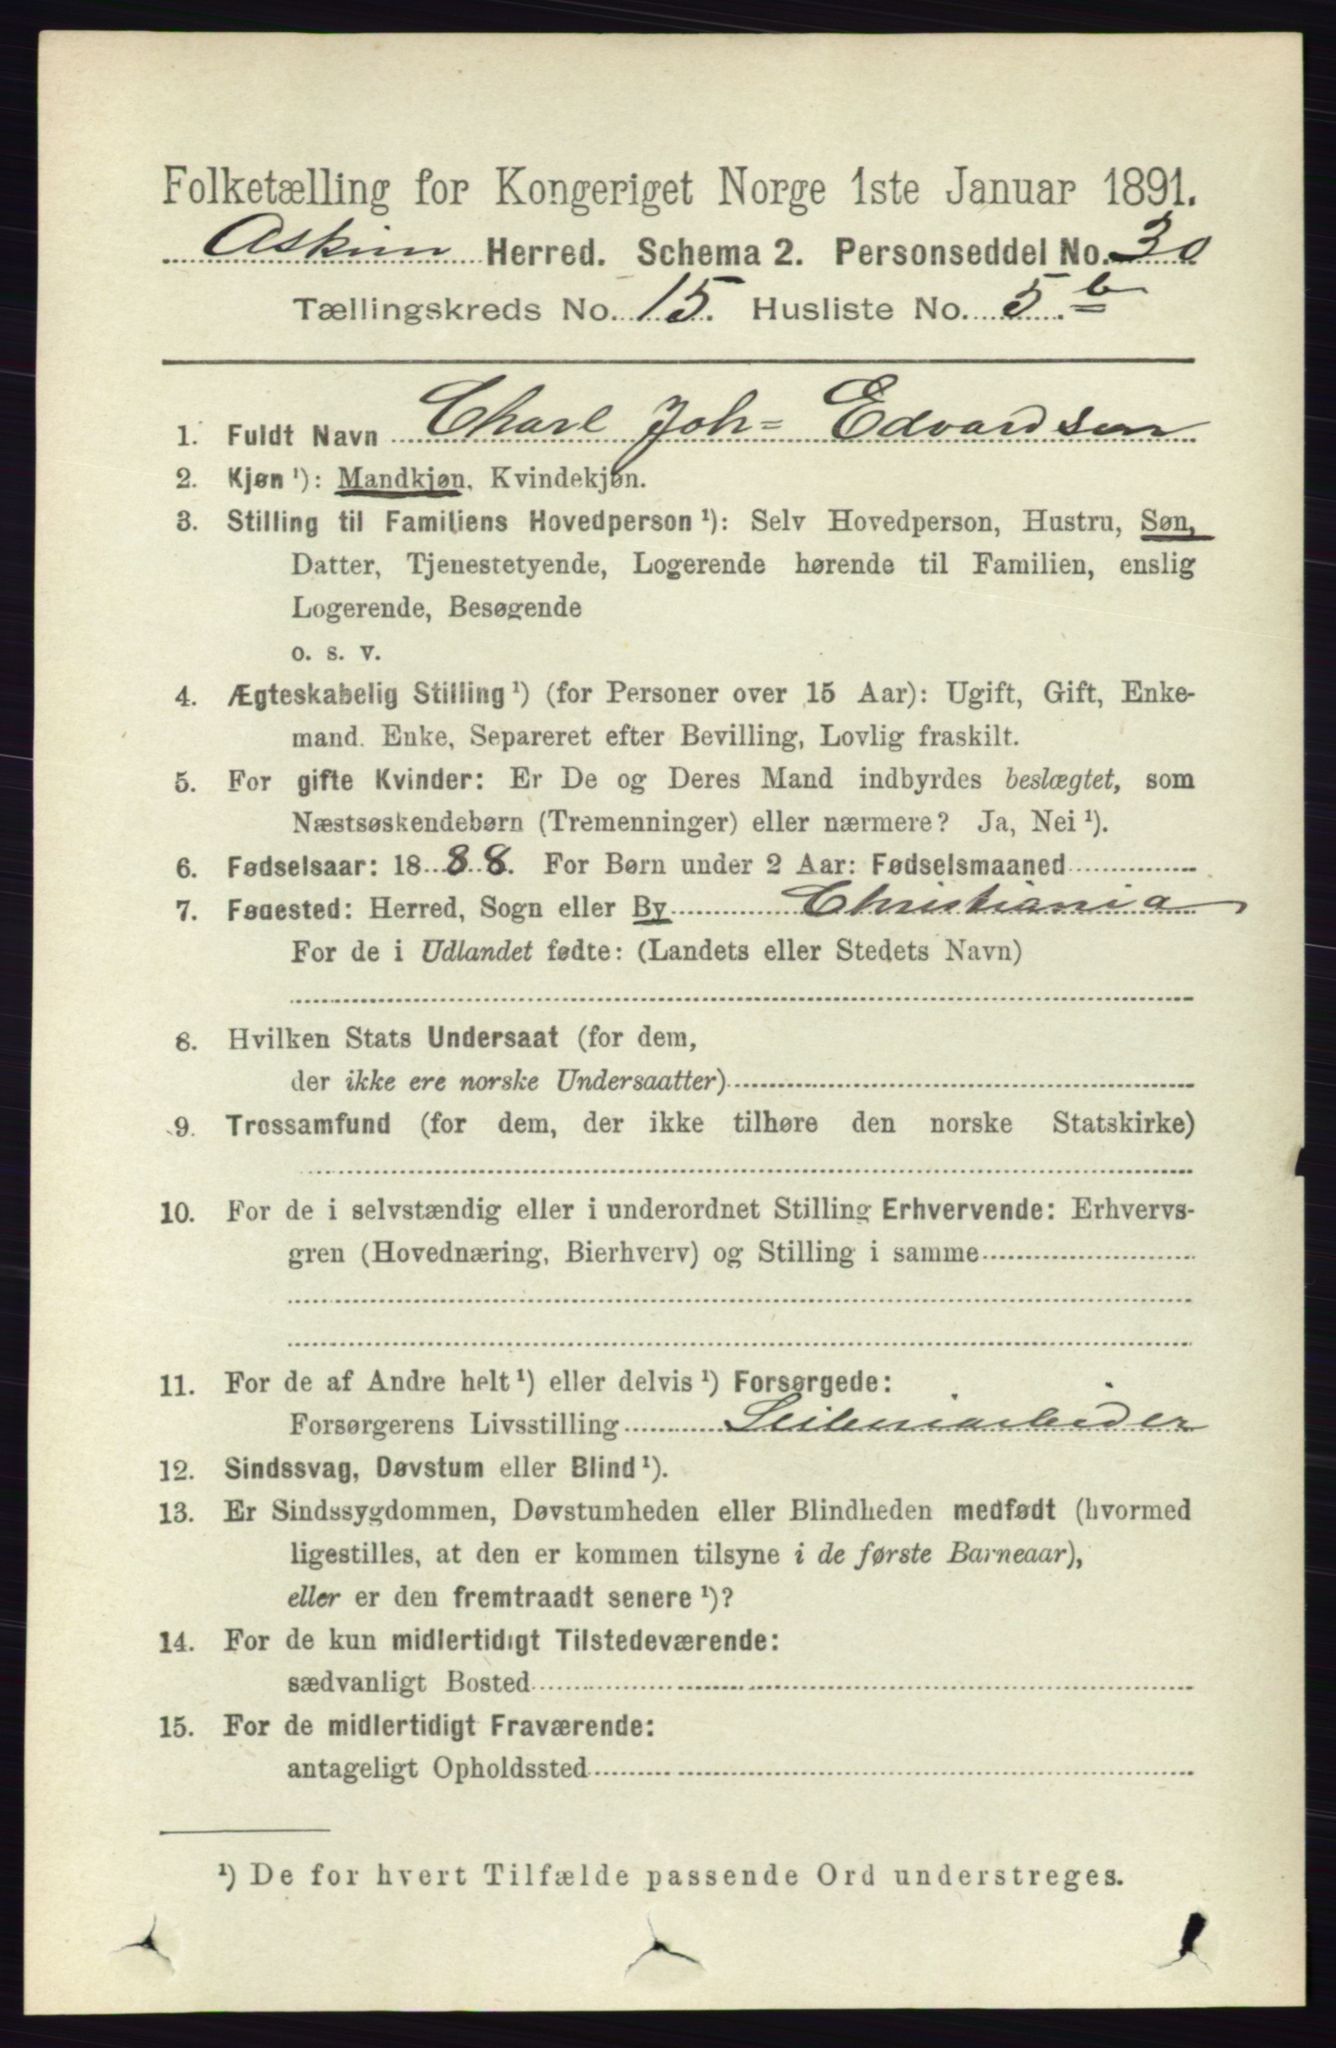 Folketælling for Kongeriget Norge 1ste Januar 1891.
Askim Herred. Schema 2. Personseddel No. 30
Tællingskreds No. 15. Husliste No. 5 b
1. Fuldt Navn Charl Joh= Edvardsen
2. Kjøn ¹): Mandkjøn, Kvindekjøn.
3. Stilling til Familiens Hovedperson ¹): Selv Hovedperson, Hustru, Søn,
Datter, Tjenestetyende, Logerende hørende til Familien, enslig
Logerende, Besøgende
o. s. v.
4. Ægteskabelig Stilling ¹) (for Personer over 15 Aar): Ugift, Gift, Enke-
mand. Enke, Separeret efter Bevilling, Lovlig fraskilt.
5. For gifte Kvinder: Er De og Deres Mand indbyrdes beslægtet, som
Næstsøskendebørn (Tremenninger) eller nærmere? Ja, Nei ¹).
6. Fødselsaar: 1888. For Børn under 2 Aar: Fødselsmaaned
7. Fødested: Herred, Sogn eller By Christiania
For de i Udlandet fødte: (Landets eller Stedets Navn)
8. Hvilken Stats Undersaat (for dem,
der ikke ere norske Undersaatter)
9. Trossamfund (for dem, der ikke tilhøre den norske Statskirke)
10. For de i selvstændig eller i underordnet Stilling Erhvervende: Erhvervs-
gren (Hovednæring, Bierhverv) og Stilling i samme
11. For de af Andre helt ¹) eller delvis ¹) Forsørgede:
Forsørgerens Livsstilling
12. Sindssvag, Døvstum eller Blind ¹).
13. Er Sindssygdommen, Døvstumheden eller Blindheden medfødt (hvormed
ligestilles, at den er kommen tilsyne i de første Barneaar),
eller er den fremtraadt senere ¹)?
14. For de kun midlertidigt Tilstedeværende:
sædvanligt Bosted
15. For de midlertidigt Fraværende:
antageligt Opholdssted
¹) De for hvert Tilfælde passende Ord understreges.